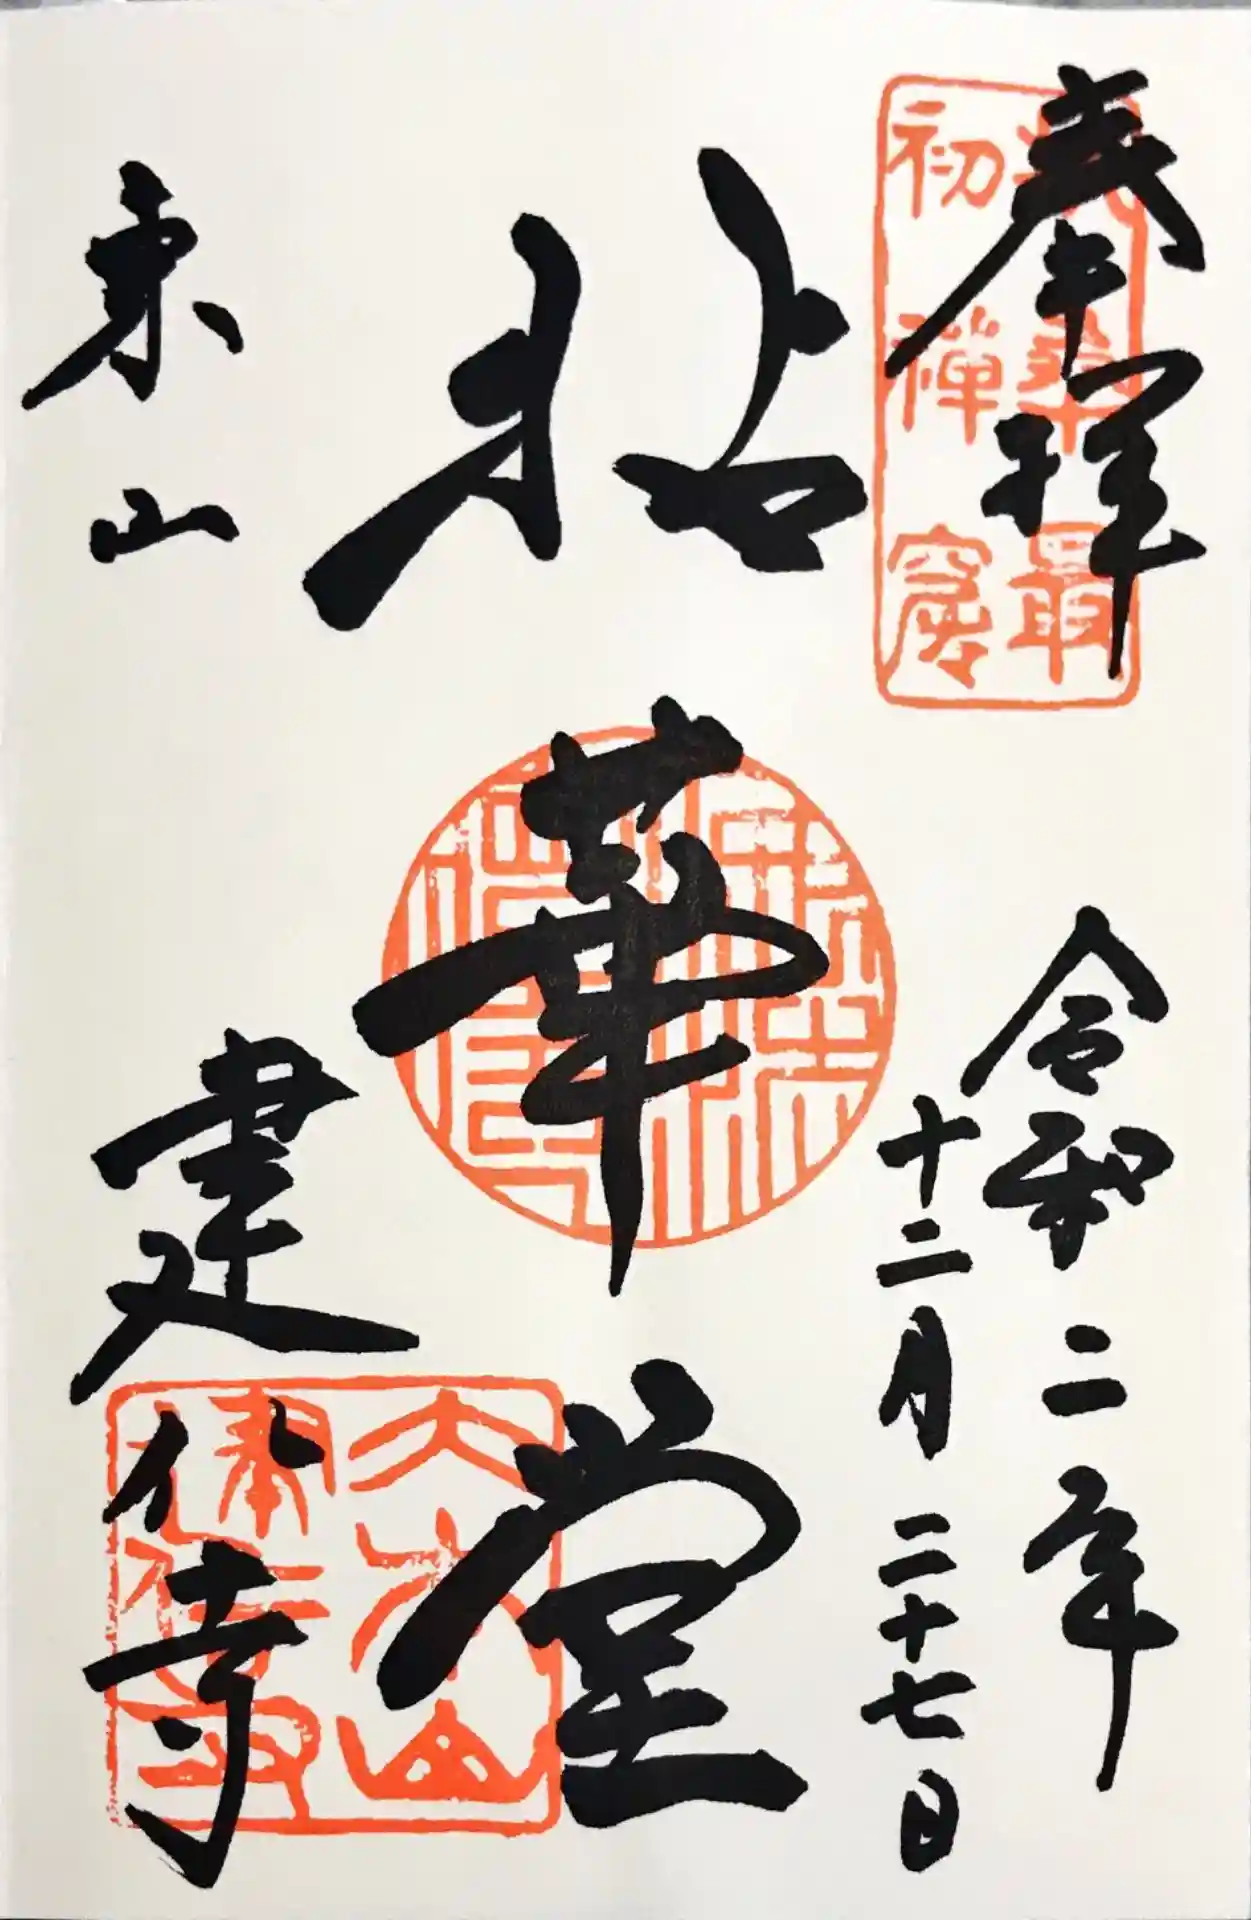 奉拝
令和二年
十二月二十七日
扶桑最
初禅窟
拈華堂
東山
建仁寺
大本山
建仁寺